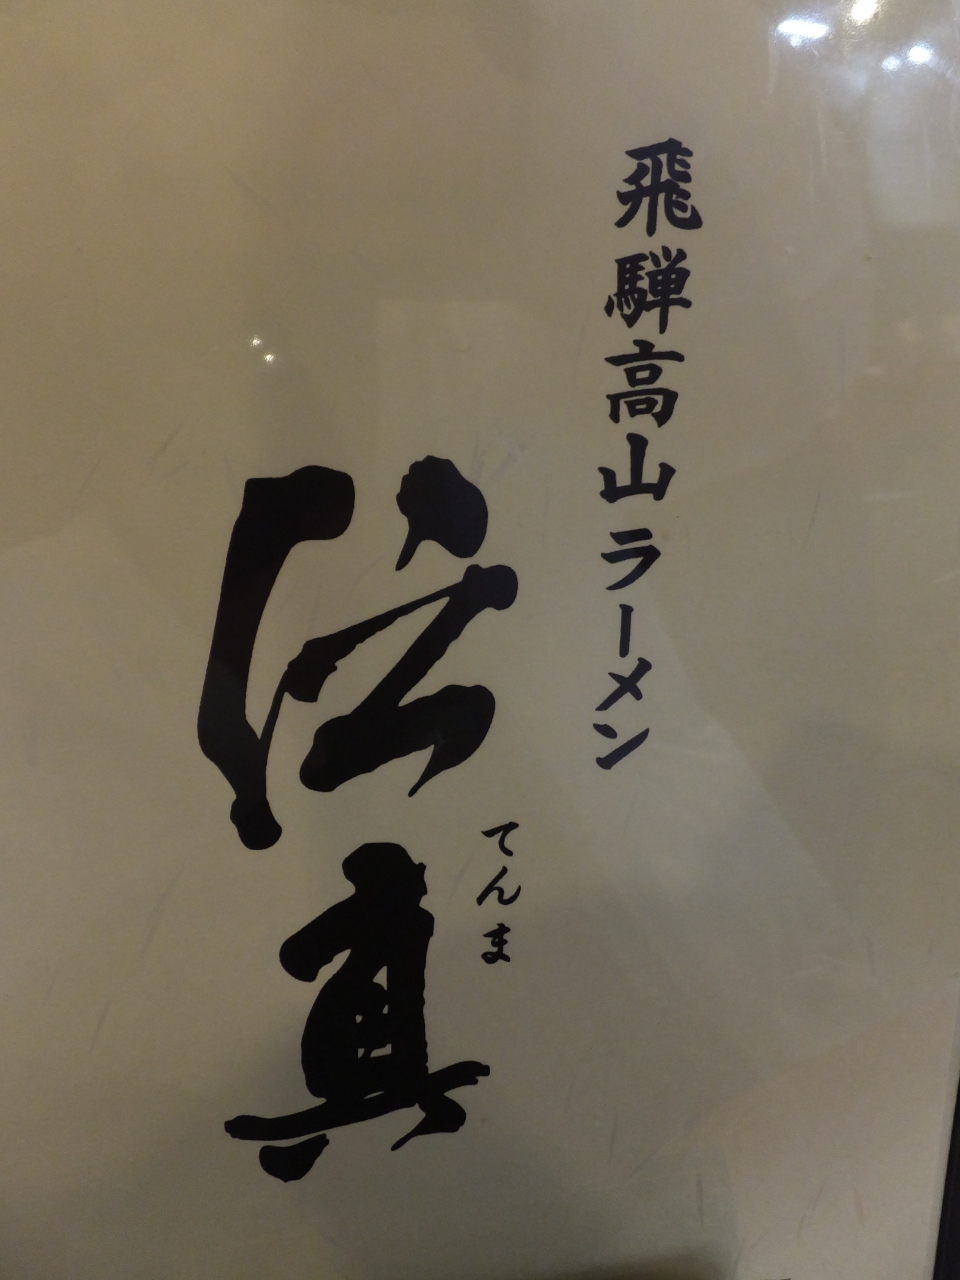 飛騨高山ラーメン
伝真
てんま